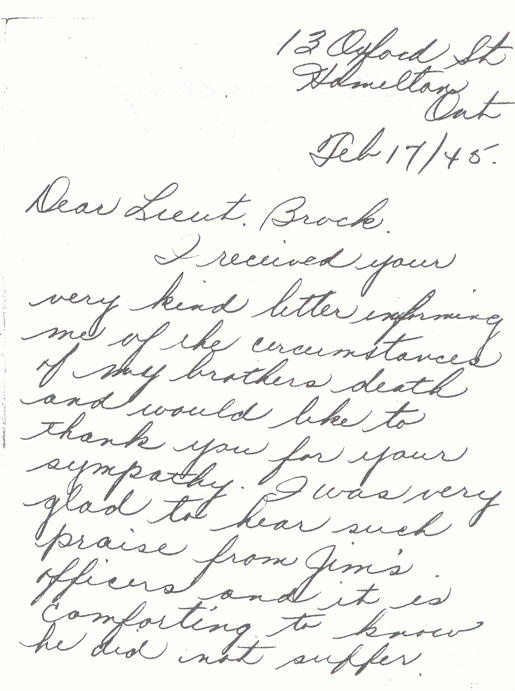 13 Oxford St
Hamilton
Ont
Feb 17/45.
Dear Lieut. Brock.
I received your
very kind letter informing
me of the circumstances
of my brothers death
and would like to
thank you for your
sympathy. I was very
glad to hear such
praise from Jim's
officers and it is
comforting to know
he did not suffer.